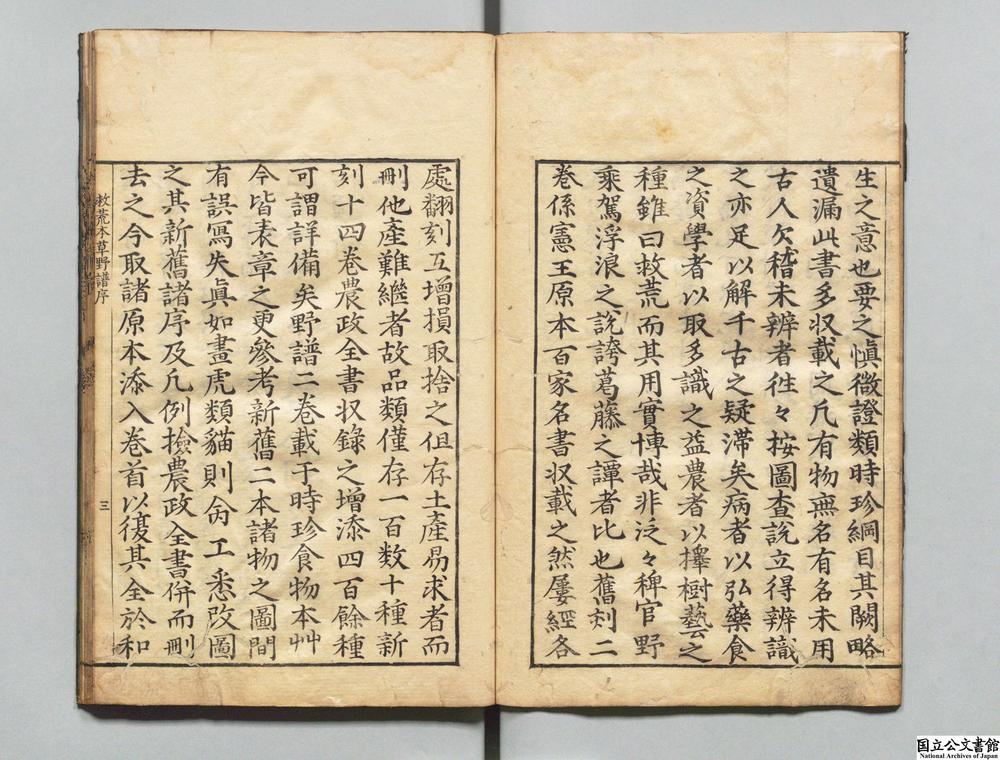 生之意也要之愼微證類時珍綱目其闕略
遺漏此書多収載之凡有物無名有名未用
古人欠稽未辨者徃々桉圖查說立得辨識
之亦足以解千古之疑滯矣病者以弘藥食
之資學者以取多識之益農者以擇樹藝之
種雖曰救荒而其用實博哉非泛々稗官野
乘駕浮浪之說誇葛藤之譚者比也舊刻二
卷係憲王原本百家名書収載之然屢經各
處翻刻互增損取捨之但存土產易求者而
刪他產難繼者故品類僅存一百数十種新
刻十四卷農政全書収錄之增添四百餘種
可謂詳備矣野譜二卷載于時珍食物本艸
今皆表章之更參考新舊二本諸物之圖間
有誤寫失眞如畫虎類貓則命工悉改圖
之其新舊諸序及凡例撿農政全書併而刪
去之今取諸原本添入卷首以復其全於和
救荒本草野譜序
三
国立公文書館
National Archives of Japan